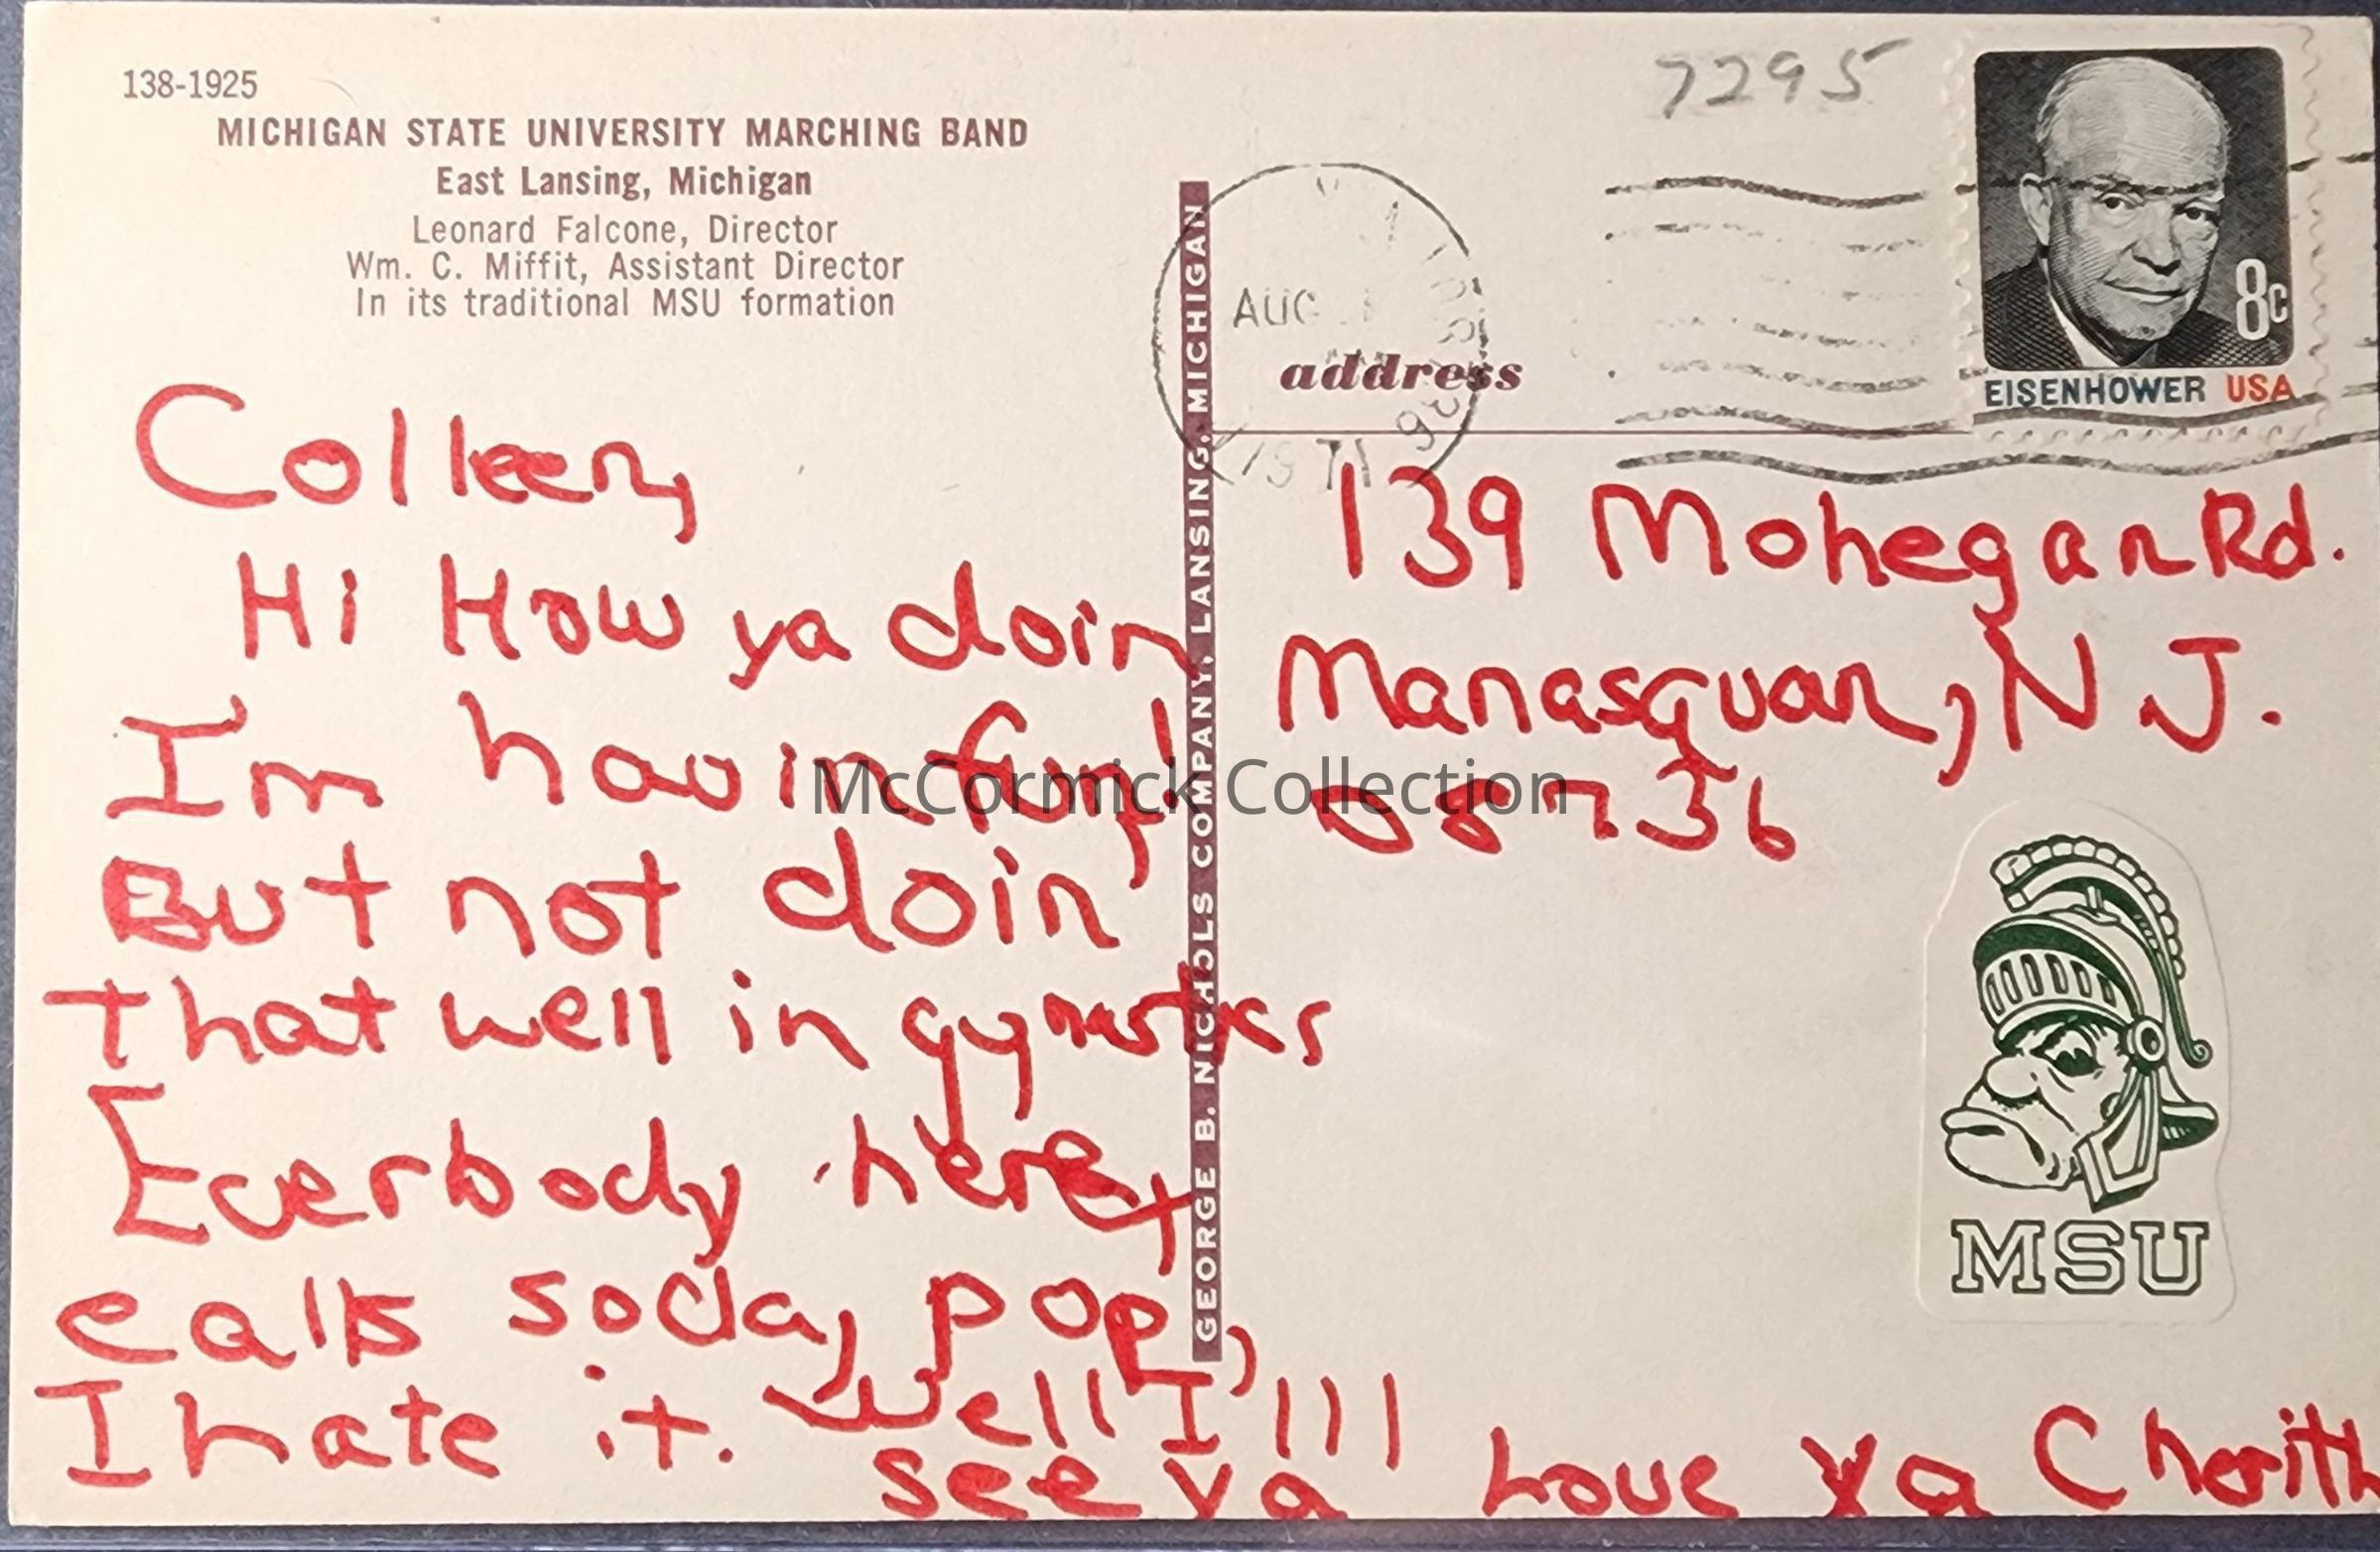 138-1925
MICHIGAN STATE UNIVERSITY MARCHING BAND
East Lansing, Michigan
Leonard Falcone, Director
Wm. C. Miffit, Assistant Director
In its traditional MSU formation
Colleen,
Hi How ya doin
Im havin fun!
But not doin'
that well in gymnastics
Everbody here,
calls soda, pop,
I hate it. Well I'lll
see ya Love Ya Cherith
GEORGE B. NICHOLS COMPANY, LANSING, MICHIGAN
7295
AUG
1971
address
8c
EISENHOWER USA
139 Mohegan Rd.
Manasquan, N J.
08736
MSU
McCormick Collection